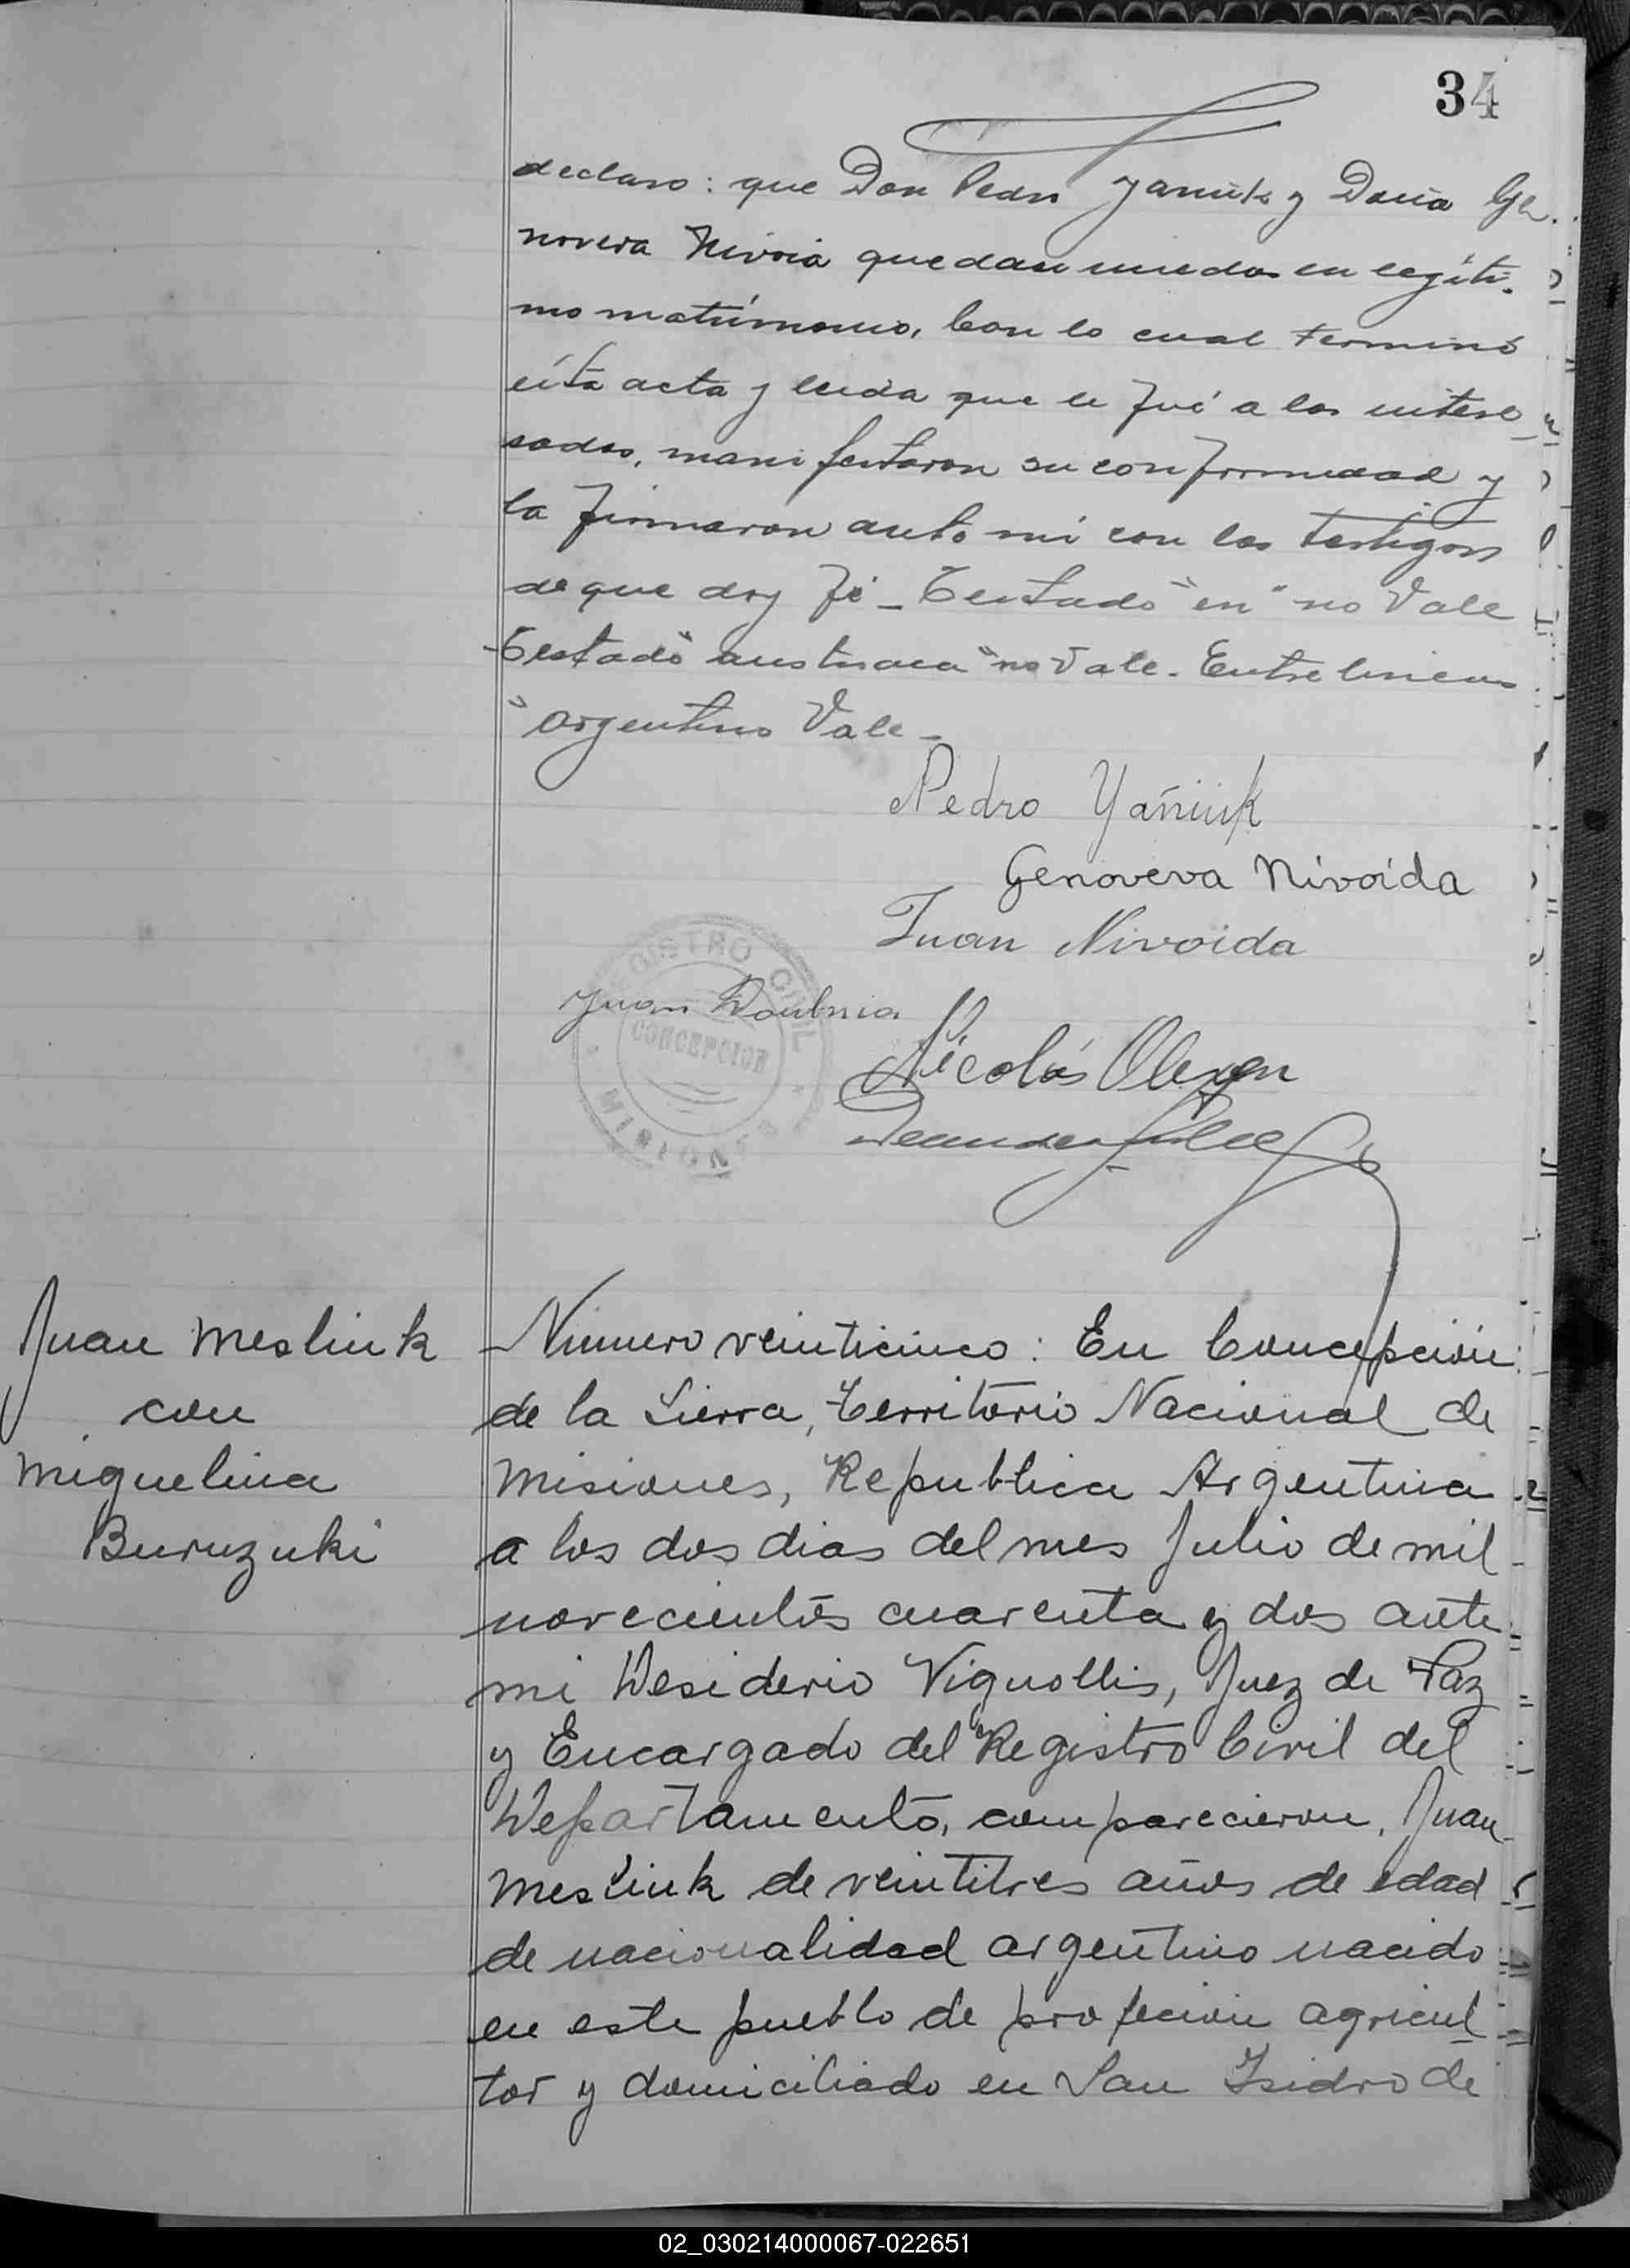 34
declaro: que Don Pedro Yaniuk y Doña Ge-
noveva Nivoia quedan unidos en legíti-
mo matrimonio. Con lo cual terminó
ésta acta y leida que le fué a los intere-
sados, manifestaron su conformidad y
la firmaron ante mi con los testigos
de que doy fé _ Testado "en" no Vale
Testado "austriaca" no Vale. Entre lineas
"argentino Vale_
Pedro Yañiuk
Genoveva Nivoida
Juan Nivoida
Juan
REGISTRO CIVIL
CONCEPCION
MISIONES
Nicolás
Juan Mesliuk
con
Miguelina
Buruzuki
Número veinticinco: En Concepción
de la Sierra, Territorio Nacional de
Misiones, Republica Argentina
a los dos dias del mes Julio de mil
novecientos cuarenta y dos ante
mi Desiderio Vignollis, Juez de Paz
y Encargado del Registro Civil del
Departamento, comparecieron, Juan
Mesliuk de veintitres años de edad
de nacionalidad argentino nacido
en este pueblo de profecion agricul-
tor y domiciliado en San Isidro de
02_030214000067-022651